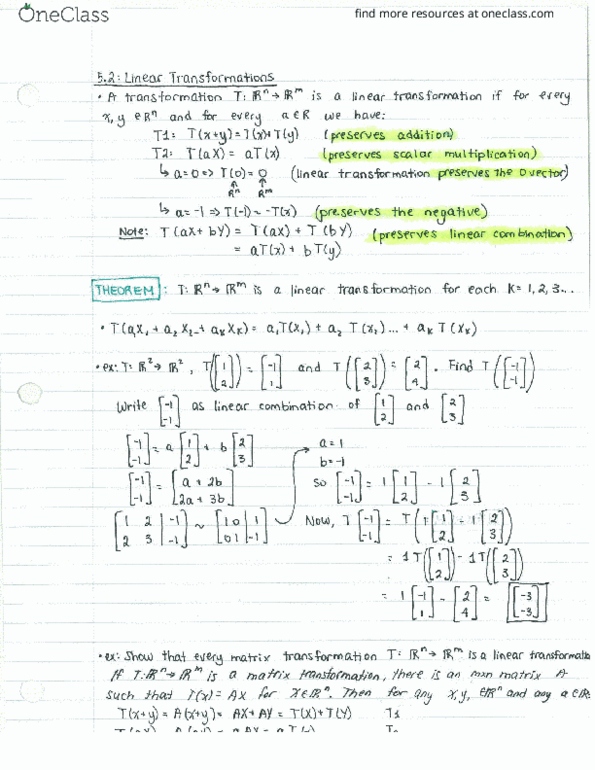 OneClass
find more resources at oneclass.com
5.2: Linear Transformations
• A transformation T: ℝⁿ → ℝᵐ is a linear transformation if for every
x, y ∈ ℝⁿ and for every a ∈ ℝ we have:
T1: T(x+y) = T(x)+T(y) (preserves addition)
T2: T(aX) = aT(x) (preserves scalar multiplication)
↳ a=0 => T(0) = 0 (linear transformation preserves the 0 vector)
↑ ↑
ℝⁿ ℝᵐ
↳ a=-1 => T(-1) = -T(x) (preserves the negative)
Note: T(aX + bY) = T(aX) + T(bY) (preserves linear combination)
= aT(x) + bT(y)
THEOREM: T: ℝⁿ → ℝᵐ is a linear transformation for each K = 1, 2, 3...
• T(a₁X₁ + a₂X₂ + aₖXₖ) = a₁T(X₁) + a₂T(X₂)... + aₖT(Xₖ)
• ex: T: ℝ² → ℝ², T([1 2]) = [-1 1] and T([2 3]) = [2 4]. Find T([-1 -1])
Write [-1 -1] as linear combination of [1 2] and [2 3]
[-1 -1] = a[1 2] + b[2 3]
a = 1
b = -1
[-1 -1] = [a + 2b 2a + 3b]
So [-1 -1] = 1[1 2] - 1[2 3]
[1 2 | -1 2 3 | -1] ~ [1 0 | 1 0 1 | -1]
Now, T[-1 -1] = T(1[1 2] - 1[2 3])
= 1T([1 2]) - 1T([2 3])
= 1[-1 1] - [2 4] = [-3 -3]
• ex: Show that every matrix transformation T: ℝⁿ → ℝᵐ is a linear transformatio
If T: ℝⁿ → ℝᵐ is a matrix transformation, there is an mxn matrix A
such that T(x) = AX for X ∈ ℝⁿ. Then for any x, y, ∈ ℝⁿ and any a ∈ ℝ
T(x+y) = A(x+y) = AX + AY = T(X) + T(Y) T1